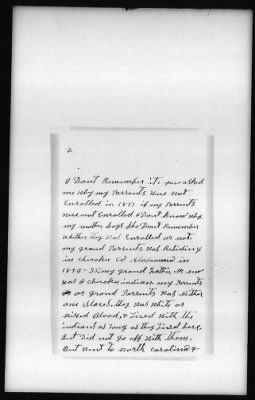 2.
I Don't Remember it, you asked
me Why my Parrents Were not
Enrolled in 1851 if my Parrents
were not Enrolled I Don't Know Why
my mother Says She Don't Remember
whether they Was Enrolled or not.
my grand Parrents Was Residing
in cherokee Co Alabamma in
1835- my grand Father
was cherokee indian. my Parrents
or grand Parrents Was Neither
one Slaves. they Was White or
mixed Blood, & Lived With the
indians as long as they Lived here.
But Did not go off With them.
But Went to North Carolina &